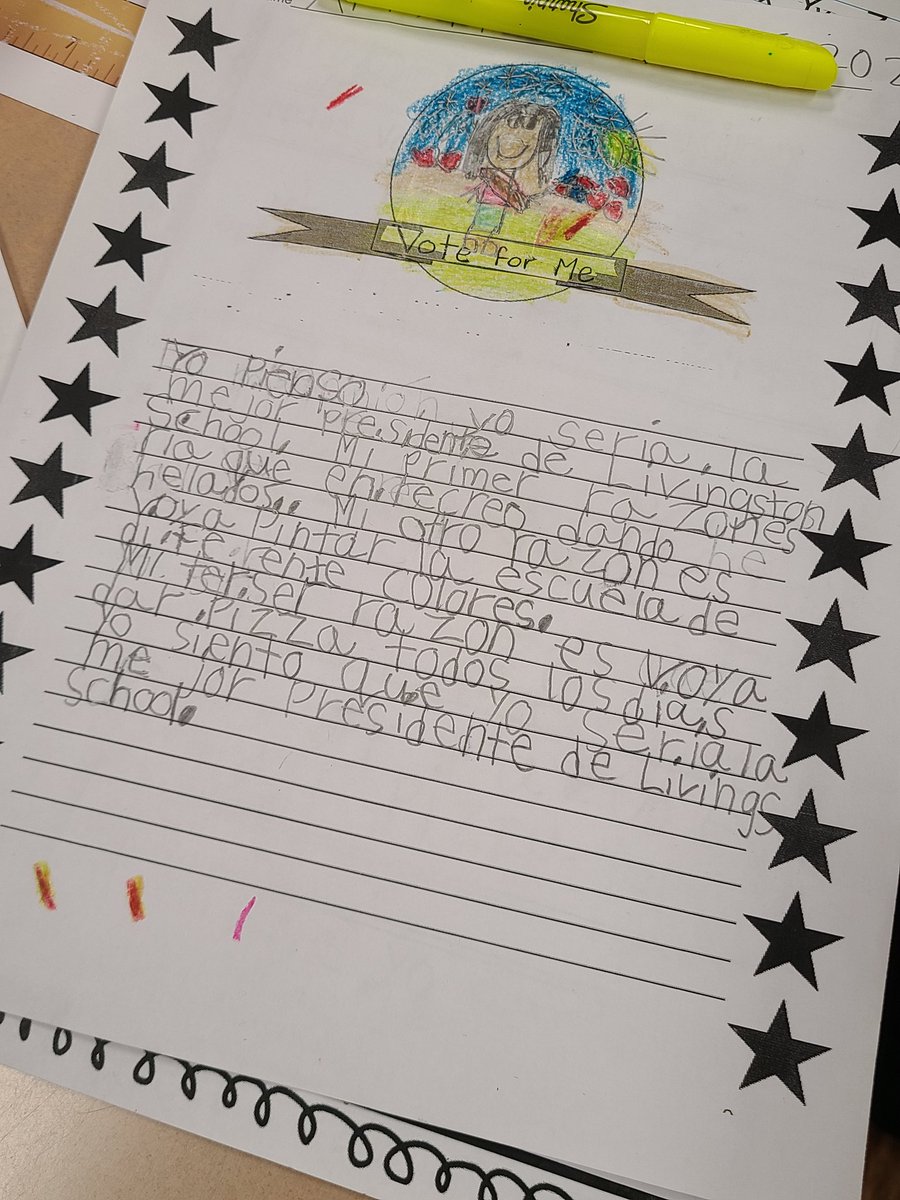 Sharpie
202
Vote for Me
Yo pienso yo sería la
mejor presidente de Livingston
School. Mi primer razones
ria que en recreo dando he
helados. Mi otro razon es
voya Pintar la escuela de
diferente colores.
Mi terser razon es voya
dar Pizza todos los dias
yo siento que yo seria la
mejor Presidente de Livings
school.